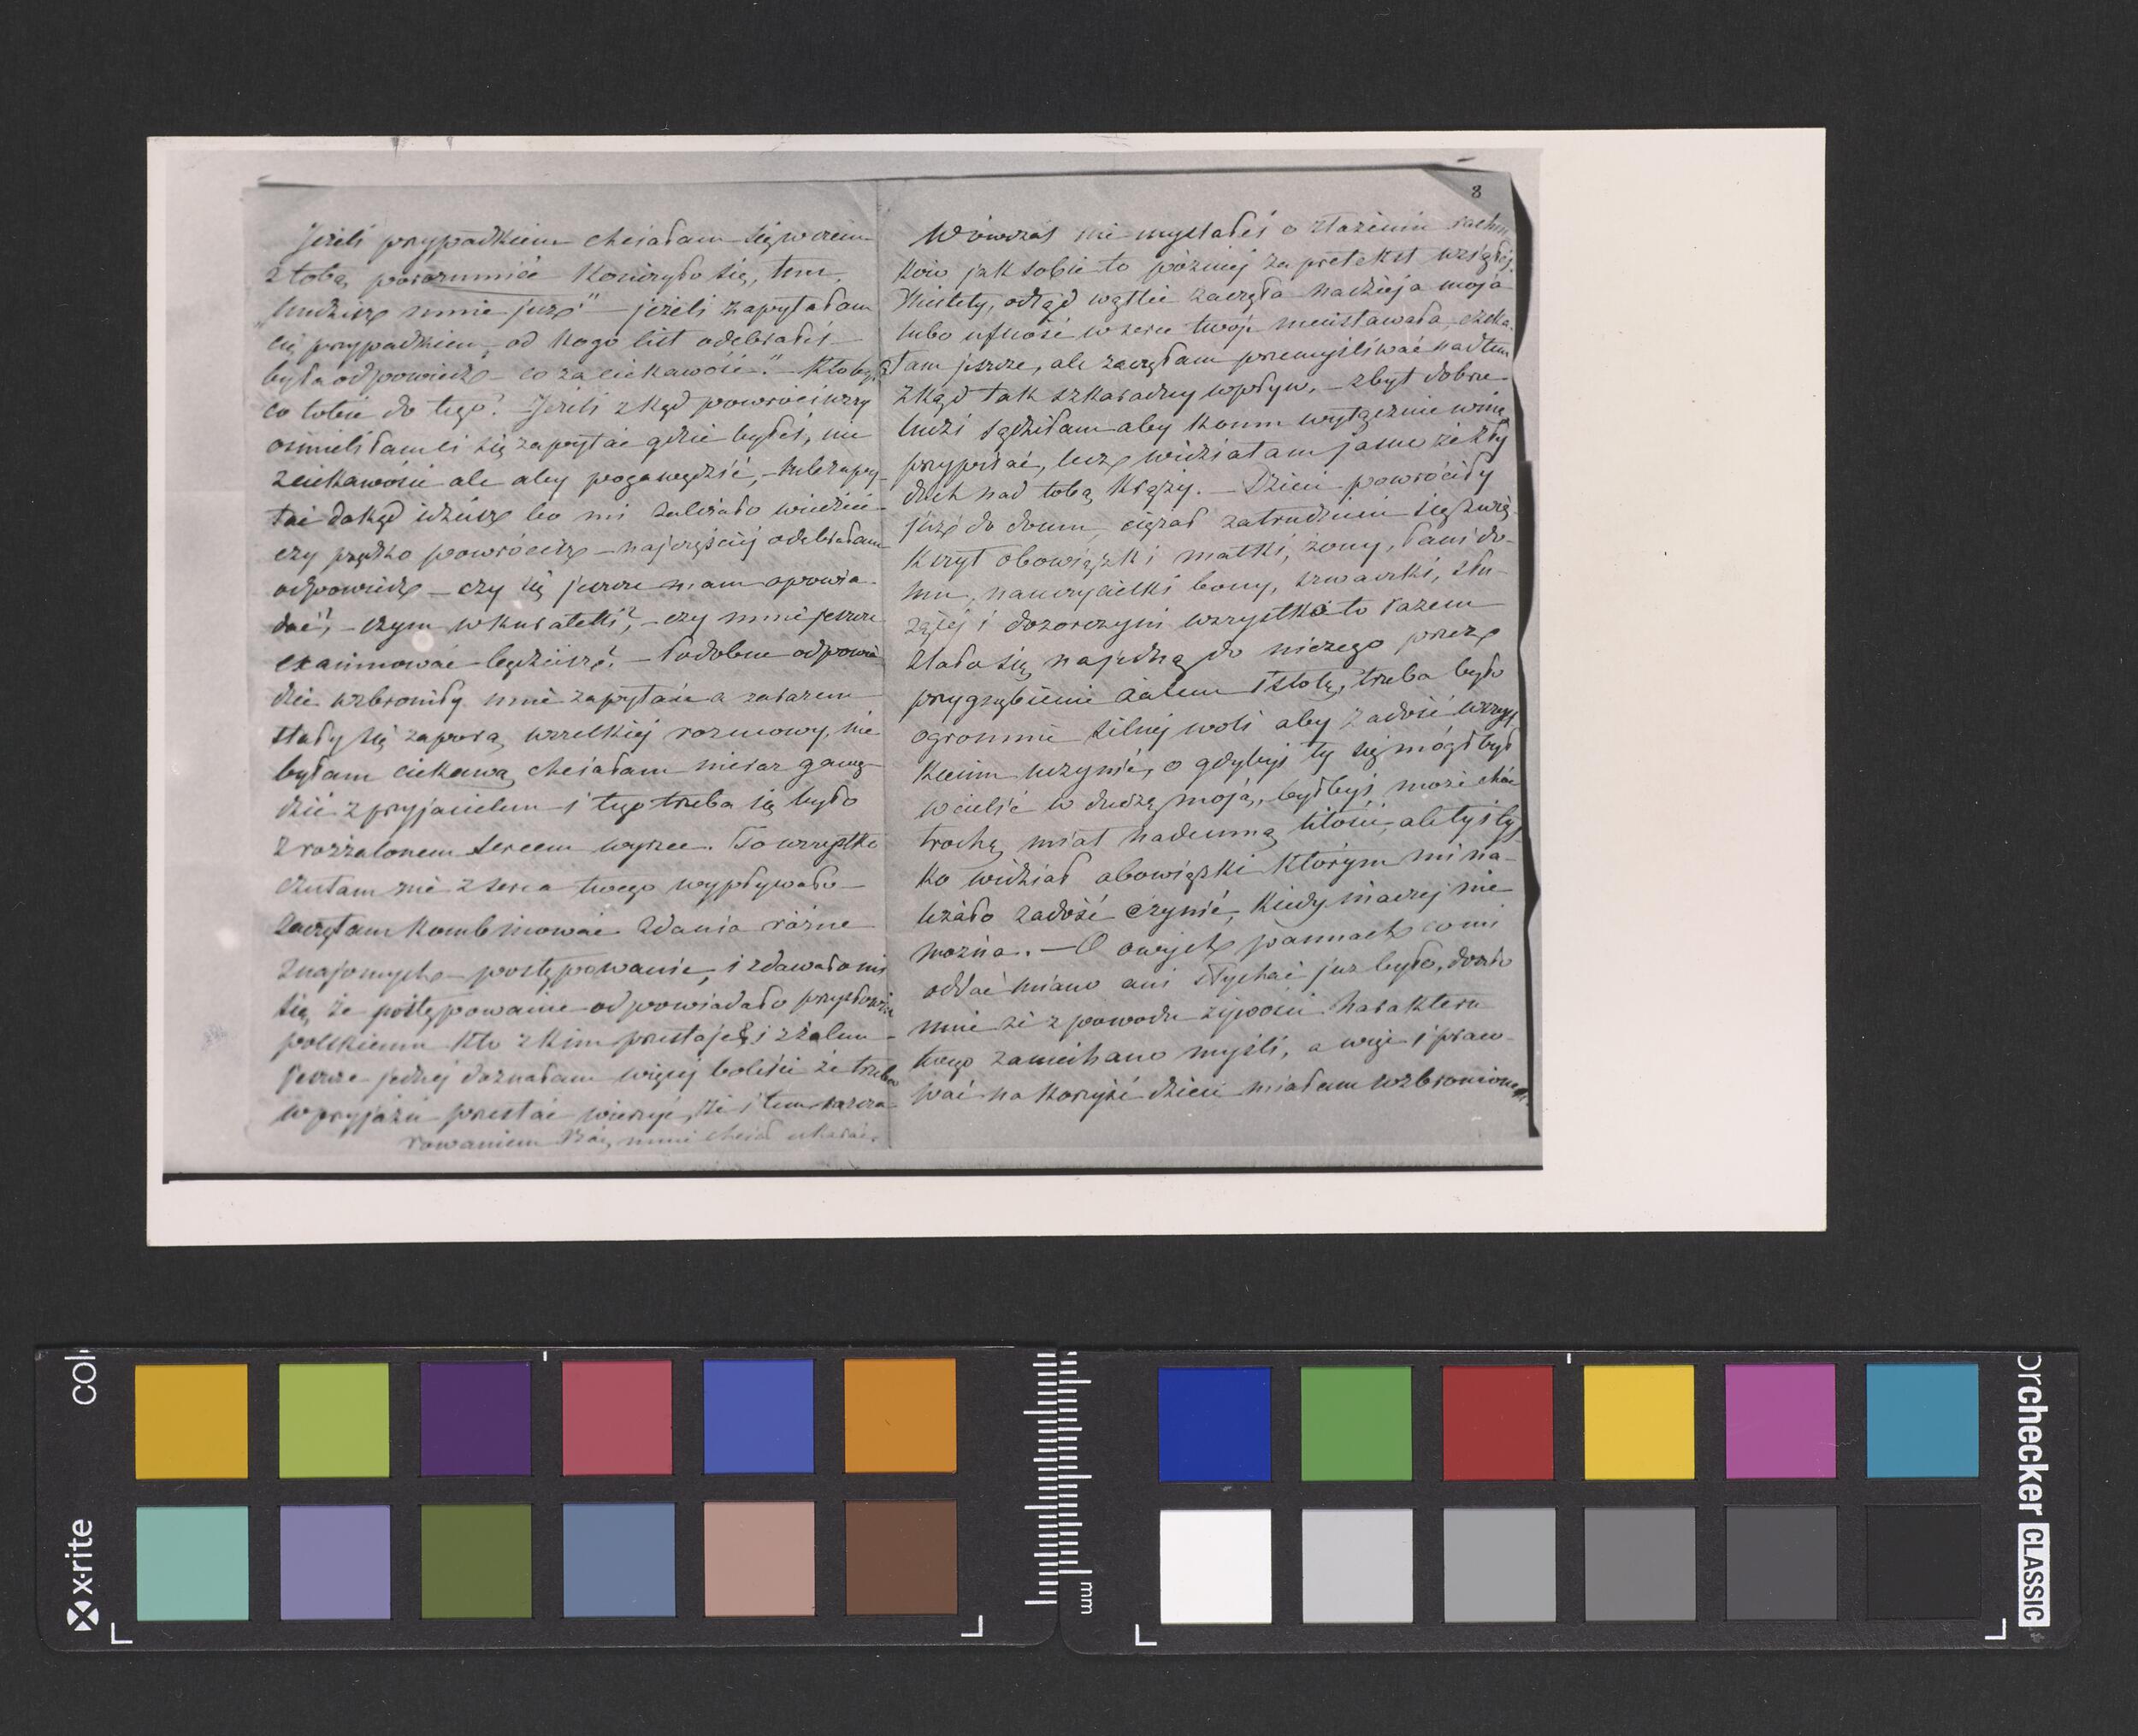 Jeżeli przypadkiem chciałam się w czem
z tobą porozumieć kończyło się, tem,
„nudzisz mnie już" — jeżeli zapytałam
cię przypadkiem, od kogo list odebrałeś —
była odpowiedź — co za ciekawość." —
co tobie do tego? Jeżeli zkąd powróciwszy
ośmieliłam ci się zapytać gdzie byłeś, nie
z ciekawości ale aby pogawędzić, — lub zapy-
tać dokąd idziesz bo mi zależało wiedzieć
czy prędko powrócisz — najczęściej odebrałam
odpowiedź — czy się jeszcze mam opowia-
dać?, — czym w kurateli?, — czy mnie jeszcze
examinować będziesz? — Podobne odpowie
dzie wzbroniły mnie zapytań a zarazem
stały się zaporą wszelkiej rozmowy, nie
byłam ciekawą chciałam nieraz gawę-
dzić z przyjacielem i tego trzeba się było
z rozżalonem sercem wyrzec. To wszystko
czułam nie z serca twego wypływało —
Zaczęłam kombinować zdania różne
znajomych — postępowanie, i zdawało mi
się, że postępowanie odpowiadało przysłowiu
polskiemu kto z kim przestaje & i z żalem
jeszcze jednej doznałam więcej boleści że trzeba
w przyjaźń przestać wierzyć, że i tem rozcza-
rowaniem Bóg mnie chciał ukarać.
8
Wówczas nie myślałeś o złożeniu rachun
ków jak sobie to później za pretekst wziąłeś.
Niestety, odtąd wątleć zaczęła nadzieja moja
lubo ufność w serce twoje nieustawała, czeka-
łam jeszcze, ale zaczęłam przemyśliwać nad tem
zkąd tak szkaradny wpływ, — zbyt dobrze
ludzi sądziłam aby komu wyłącznie winę
przypisać, lecz widziałam jasno że zły
duch nad tobą krąży. — Dzieci powróciły
już do domu, ciężar zatrudnień się zwię-
kszył obowiązki matki, żony, Pani do-
mu, nauczycielki bony, szwaczki, słu-
żącej i dozorczyni wszystko to razem
zlało się na jedną do niczego prócz
przygnębienie żalem istotę, trzeba było
ogromnie silnej woli aby zadość wszys
kiemu uczynić, o gdybyś ty się mógł był
wcielić w duszę moją, byłbyś może choć
trochę miał nademną litości, ale ty tyl
ko widział obowiązki którym mi na-
leżało zadość czynić, kiedy inaczej nie
można. — O owych pannach co mi
oddać miano ani słychać już było, doszło
mnie że z powodu żywości harakteru
twego zaniechano myśli, a więc i praco-
wać na korzyść dzieci miałam wzbronionem.